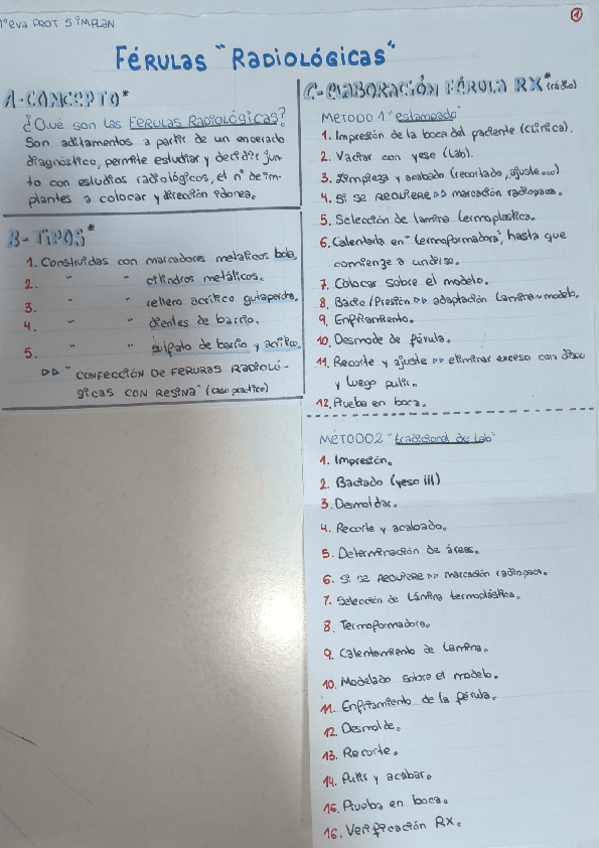 1ºeva PROT SIMPLAN
1
FÉRULAS "RADIOLÓGICAS"
A-CONCEPTO*
¿Qué son las FÉRULAS RADIOLÓGICAS?
Son aditamentos a partir de un encerado
diagnóstico, permite estudiar y decidir jun
to con estudios radiológicos, el nº de im-
plantes a colocar y dirección idónea.
B-TIPOS*
1. Construidas con marcadores metálicos bola.
2. " " cilindros metálicos.
3. " " relleno acrílico gutapercha.
4. " " dientes de barrio.
5. " " sulfato de barrio y acrílico.
▷▷ "CONFECCIÓN DE FERURAS RADIOLÓ-
GICAS CON RESINA" (caso práctico)
C-ELABORACIÓN FÉRULA RX* (rádio)
MÉTODO 1 "estampado"
1. Impresión de la boca del paciente (clínica).
2. Vaciar con yeso (lab).
3. Limpieza y acabado (recortado, ajuste...)
4. SI SE REQUIERE ▷▷ marcación radiopaca.
5. Selección de lamina termoplástica.
6. Calentarla en "termoformadora", hasta que
comienze a undirse.
7. Colocar sobre el modelo.
8. Bacío/Presión ▷▷ adaptación lámina~modelo.
9. Enfriamiento.
10. Desmode de férula.
11. Recorte y ajuste ▷▷ eliminar exceso con disco
y luego pulir.
12. Prueba en boca.
MÉTODO2 "tradicional de lab"
1. Impresión.
2. Baciado (yeso III)
3. Desmoldar.
4. Recorte y acabado.
5. Determinación de áreas.
6. SI SE REQUIERE ▷▷ marcación radiopaca.
7. Selección de Lámina termoplástica.
8. Termoformadora.
9. Calentamiento de lamina.
10. Modelado sobre el modelo.
11. Enfriamiento de la férula.
12. Desmolde.
13. Recorte.
14. Pulir y acabar.
15. Prueba en boca.
16. Verificación RX.